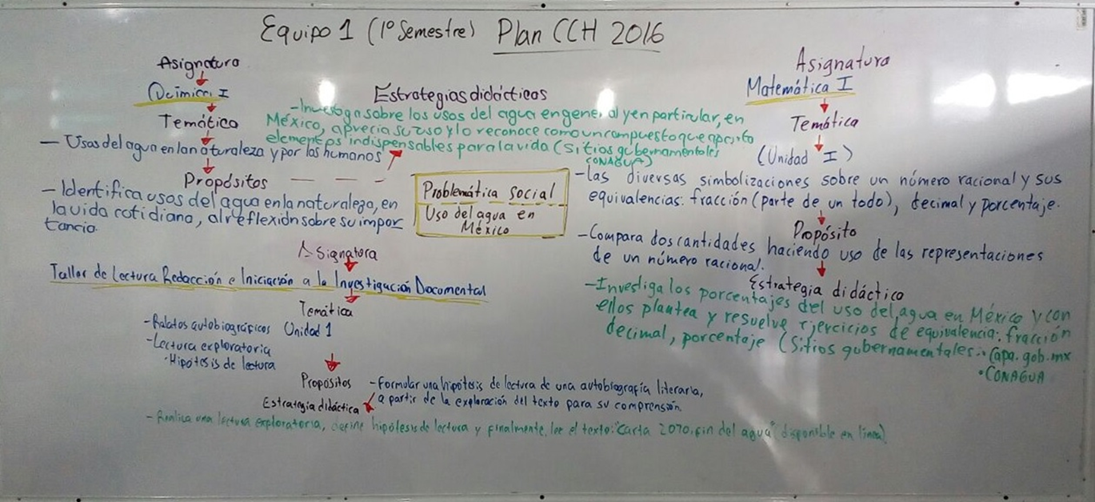 Equipo 1 (1º Semestre) Plan CCH 2016
Asignatura
Química I
Temática
- Usos del agua en la naturaleza y por los humanos
Propósitos
- Identifica usos del agua en la naturaleza, en
la vida cotidiana, al reflexión sobre su impor
tancia.
Estrategias didácticas
- Investiga sobre los usos del agua en general y en particular, en
México, aprecia su uso y lo reconoce como un compuesto que aporta
elementos indispensables para la vida (Sitios gubernamentales
CONAGUA)
Problemática social
Uso del agua en
México
Asignatura
Taller de Lectura Redacción e Iniciación a la Investigación Documental
Temática
Unidad 1
- Relatos autobiográficos
- Lectura exploratoria
· Hipótesis de lectura
Propósitos
- Formular una hipótesis de lectura de una autobiografía literaria,
a partir de la exploración del texto para su comprensión
Estrategia didáctica
- Realiza una lectura exploratoria, define hipótesis de lectura y finalmente, lee el texto: "Carta 2070, fin del agua" disponible en línea)
Asignatura
Matemática I
Temática
(Unidad I)
- Las diversas simbolizaciones sobre un número racional y sus
equivalencias: fracción (parte de un todo), decimal y porcentaje.
Propósito
- Compara dos cantidades haciendo uso de las representaciones
de un número racional.
Estrategia didáctica
- Investiga los porcentajes del uso del agua en México y con
ellos plantea y resuelve ejercicios de equivalencia: fracción
decimal, porcentaje (Sitios gubernamentales: · capa.gob.mx
· CONAGUA